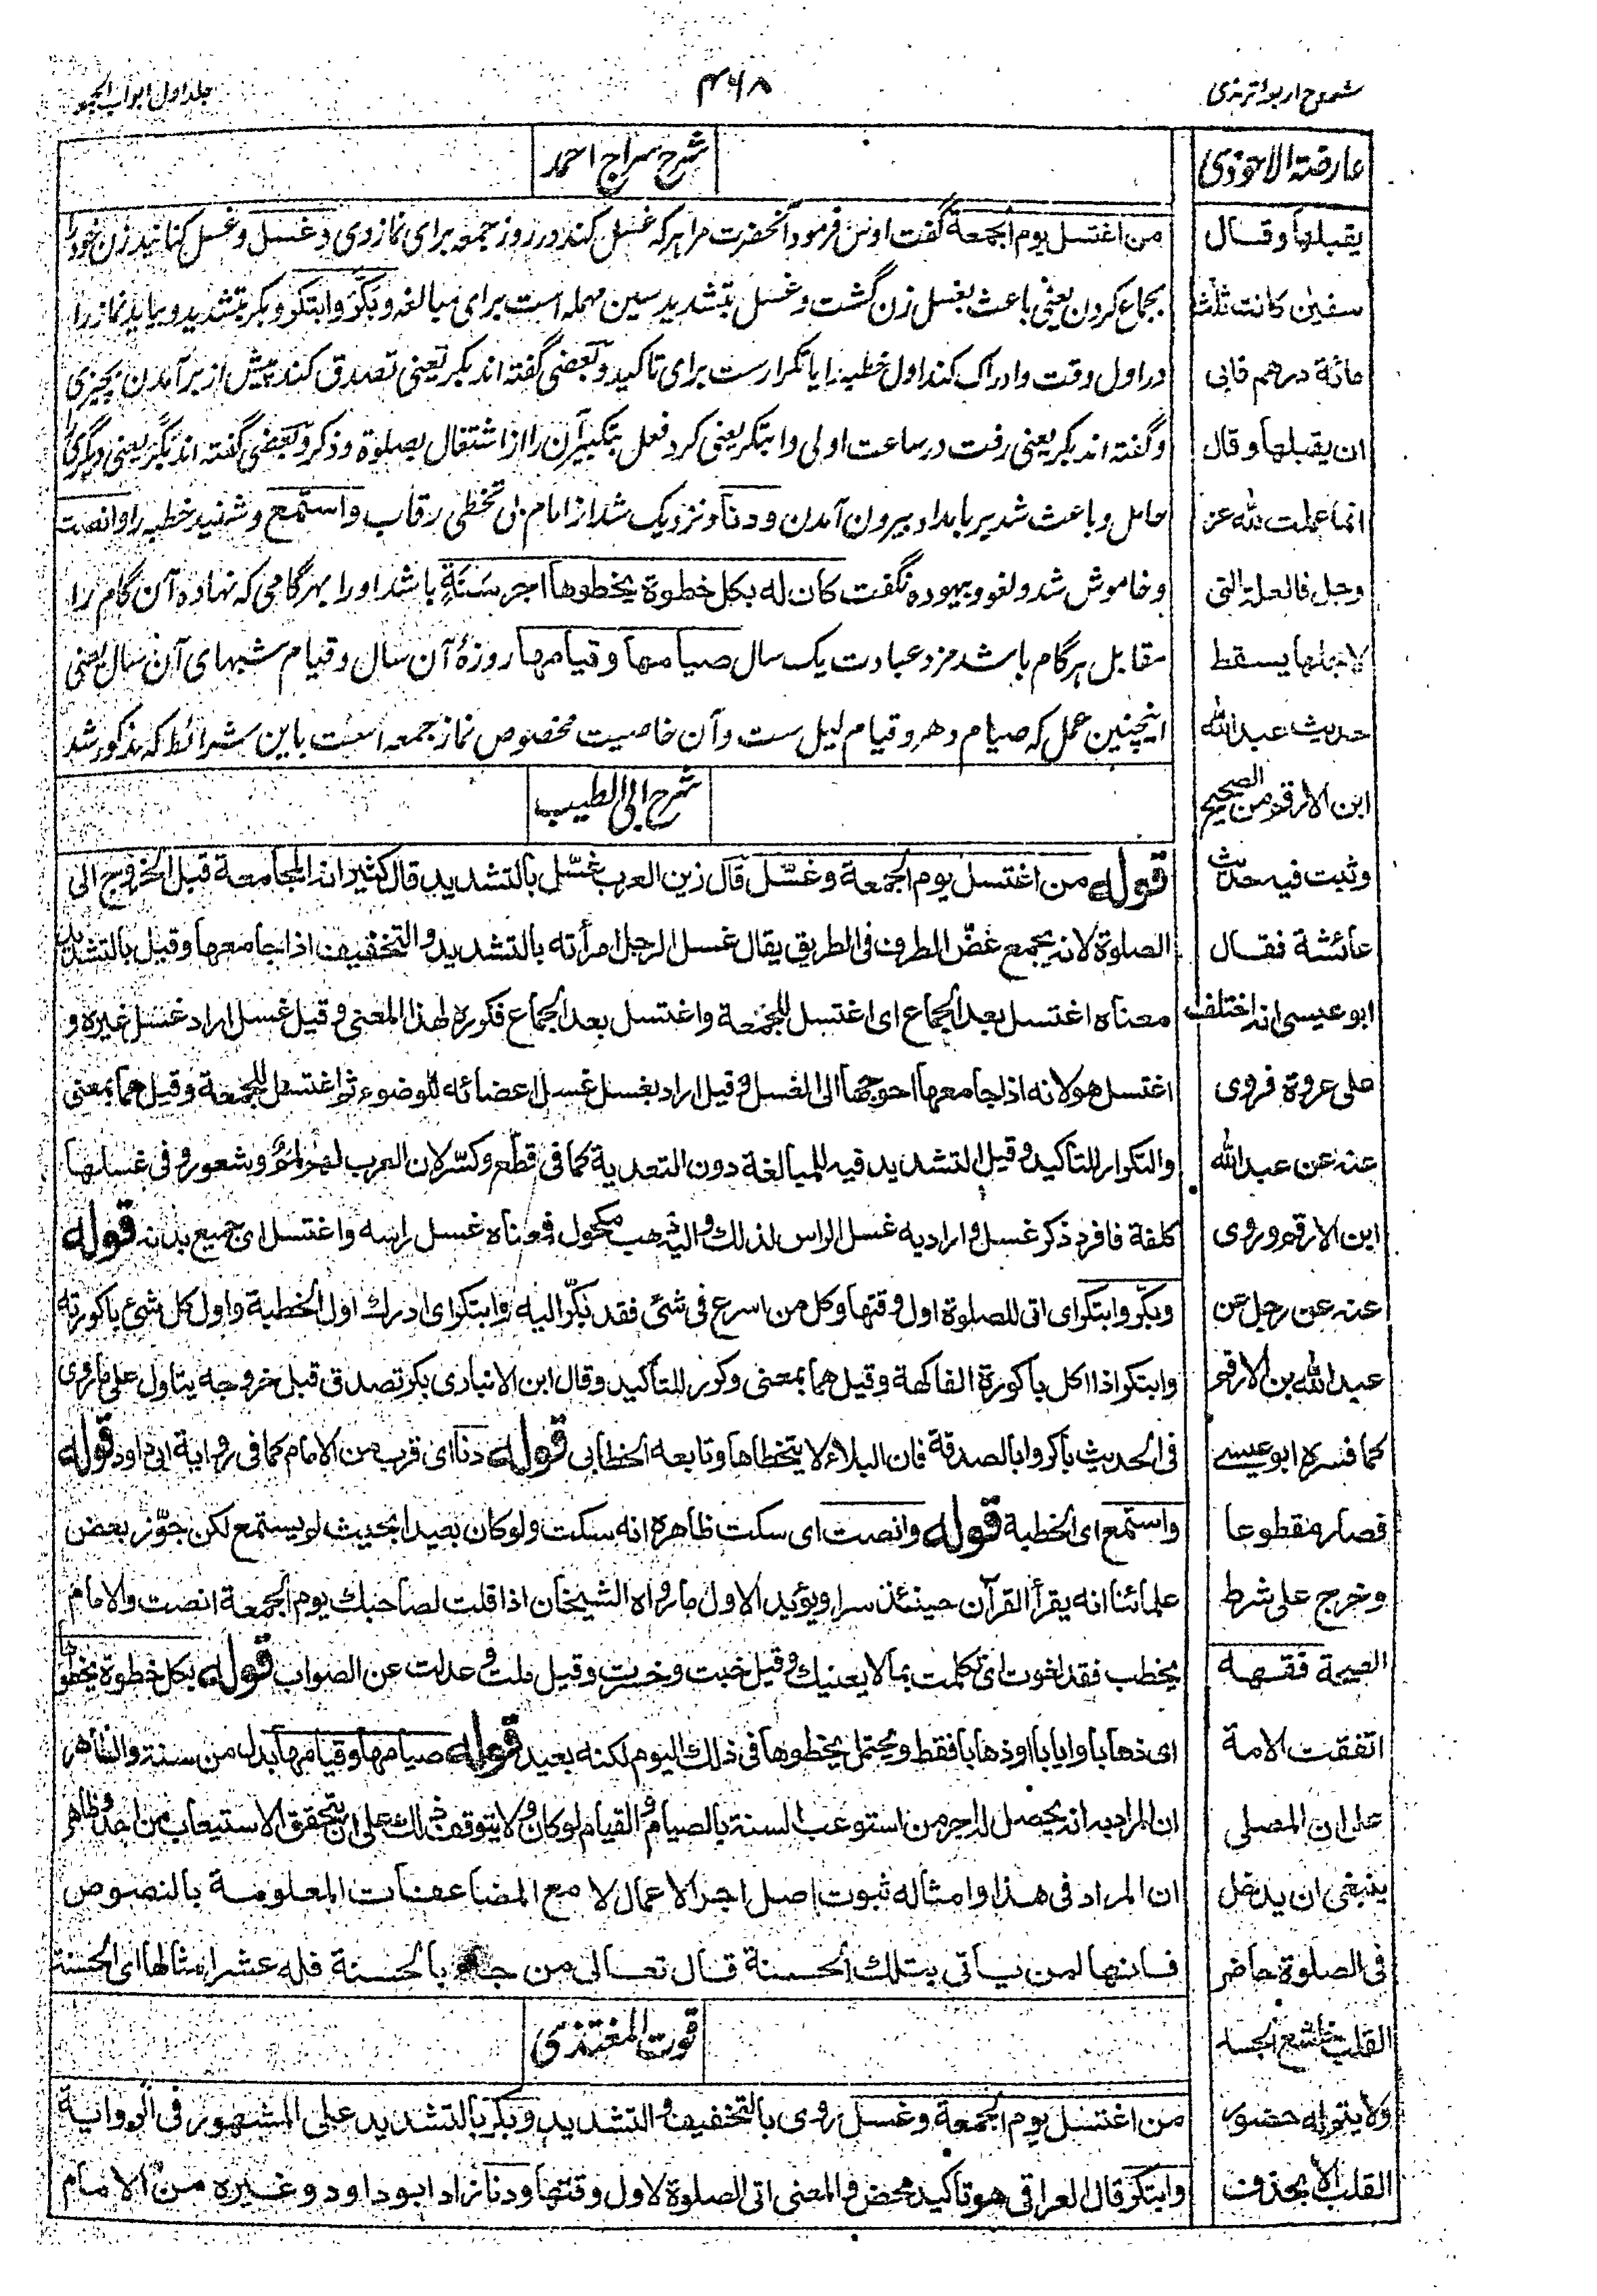 شروح اربعه ترمذى
۴۶۸
جلد اول ابواب الجمعه
عارضة الاحوذى
يقبلها وقال
سفين كانت ثلث
مائة درهم فابى
ان يقبلها وقال
انما عملت لله عز
وجل فالعلة التى
لاجلها يسقط
حديث عبد الله
ابن الارقم من الصحيح
وثبت فيه حديث
عائشة فقال
ابو عيسى انه اختلف
على عروة فروى
عنه عن عبد الله
ابن الارقم وروى
عنه عن رجل عن
عبد الله بن الارقم
كما فسره ابو عيسى
فصار مقطوعا
وخرج على شرط
الصحة فقهه
اتفقت الامة
على ان المصلى
ينبغى ان يدخل
فى الصلوة حاضر
القلب خاشع الجسد
ولا يتم له حضور
القلب الا بحذف
شرح سراج احمد
من اغتسل يوم الجمعة گفت اوس فرمود آنحضرت مرا هركه غسل كند در روز جمعه براى نماز وى و غسل وغسل كنانيد زن خود را
بجماع كردن يعنى باعث بغسل زن گشت وغسل بتشديد سين مهمله است براى مبالغه وبكر وابتكر وبكر بتشديد وبيايد نماز را
در اول وقت وادراك كند اول خطبه را يا تكرارست براى تاكيد وبعضى گفته اند بكر يعنى تصدق كند پيش از برآمدن بچيزى
وگفته اند بكر يعنى رفت در ساعت اولى وابتكر يعنى كرد فعل مبتكرين را از اشتغال بصلوة وذكر وبعضى گفته اند بكر يعنى ديگرى را
حامل وباعث شد بر بامداد بيرون آمدن ودنا ونزديك شد از امام بى تخطى رقاب واستمع وشنيد خطبه را وانصت
وخاموش شد ولغو وبيهوده نگفت كان له بكل خطوة يخطوها اجر سنة باشد او را بهر گامى كه نهاده آن گام را
مقابل هر گام باشد مزد عبادت يك سال صيامها وقيامها روزۀ آن سال وقيام شبهاى آن سال يعنى
اينچنين عمل كه صيام دهر وقيام ليل ست وآن خاصيت مخصوص نماز جمعه است باين شرائط كه مذكور شد
شرح ابى الطيب
قوله من اغتسل يوم الجمعة وغسّل قال زين العرب غسّل بالتشديد قال كثير انه المجامعة قبل الخروج الى
الصلوة لانه يجمع غضّ الطرف فى الطريق يقال غسل الرجل امرأته بالتشديد والتخفيف اذا جامعها وقيل بالتشديد
معناه اغتسل بعد الجماع اى اغتسل للجمعة واغتسل بعد الجماع فكوره لهذا المعنى وقيل غسل اراد غسل غيره و
اغتسل هو لانه اذا جامعها احوجها الى الغسل وقيل اراد بغسل غسل اعضائه للوضوء ثم اغتسل للجمعة وقيل هما بمعنى
والتكرار للتأكيد وقيل التشديد فيه للمبالغة دون التعدية كما فى قطّع وكسّر لان العرب لهم لمم وشعور وفى غسلها
كلفة فافرد ذكر غسل واراد به غسل الراس لذلك واليه ذهب مكحول فمعناه غسل راسه واغتسل اى جميع بدنه قوله
وبكّر وابتكر اى اتى للصلوة اول وقتها وكل من اسرع فى شئ فقد بكّر اليه وابتكر اى ادرك اول الخطبة واول كل شئ باكورته
وابتكر اذا اكل باكورة الفاكهة وقيل هما بمعنى وكرر للتأكيد وقال ابن الانبارى بكر تصدق قبل خروجه يتاول على ما روى
فى الحديث باكروا بالصدقة فان البلاء لا يتخطاها وتابعه الخطابى قوله دنا اى قرب من الامام كما فى رواية ابى داود قوله
واستمع اى الخطبة قوله وانصت اى سكت ظاهره انه سكت ولو كان بعيدا بحيث لو يستمع لكن جوّز بعض
علمائنا انه يقرأ القرآن حينئذ سرا ويؤيد الاول ما رواه الشيخان اذا قلت لصاحبك يوم الجمعة انصت والامام
يخطب فقد لغوت اى تكلمت بما لا يعنيك وقيل خبت وخسرت وقيل ملت وعدلت عن الصواب قوله بكل خطوة يخطوها
اى ذهابا وايابا او ذهابا فقط ويحتمل يخطوها فى ذلك اليوم لكنه بعيد قوله صيامها وقيامها بدل من سنة والظاهر
ان المراد به انه يحصل له اجر من استوعب السنة بالصيام والقيام لو كان ولا يتوقف ذلك على ان يتحقق الاستيعاب من احد وظاهر
ان المراد فى هذا وامثاله ثبوت اصل اجر الاعمال لا مع المضاعفات المعلومة بالنصوص
فانها لمن ياتى بتلك الحسنة قال تعالى من جاء بالحسنة فله عشر امثالها اى الحسنة
قوت المغتذى
من اغتسل يوم الجمعة وغسل روى بالتخفيف والتشديد وبكر بالتشديد على المشهور فى الرواية
وابتكر قال العراقى هو تأكيد محض والمعنى اتى الصلوة لاول وقتها ودنا زاد ابو داود وغيره من الامام